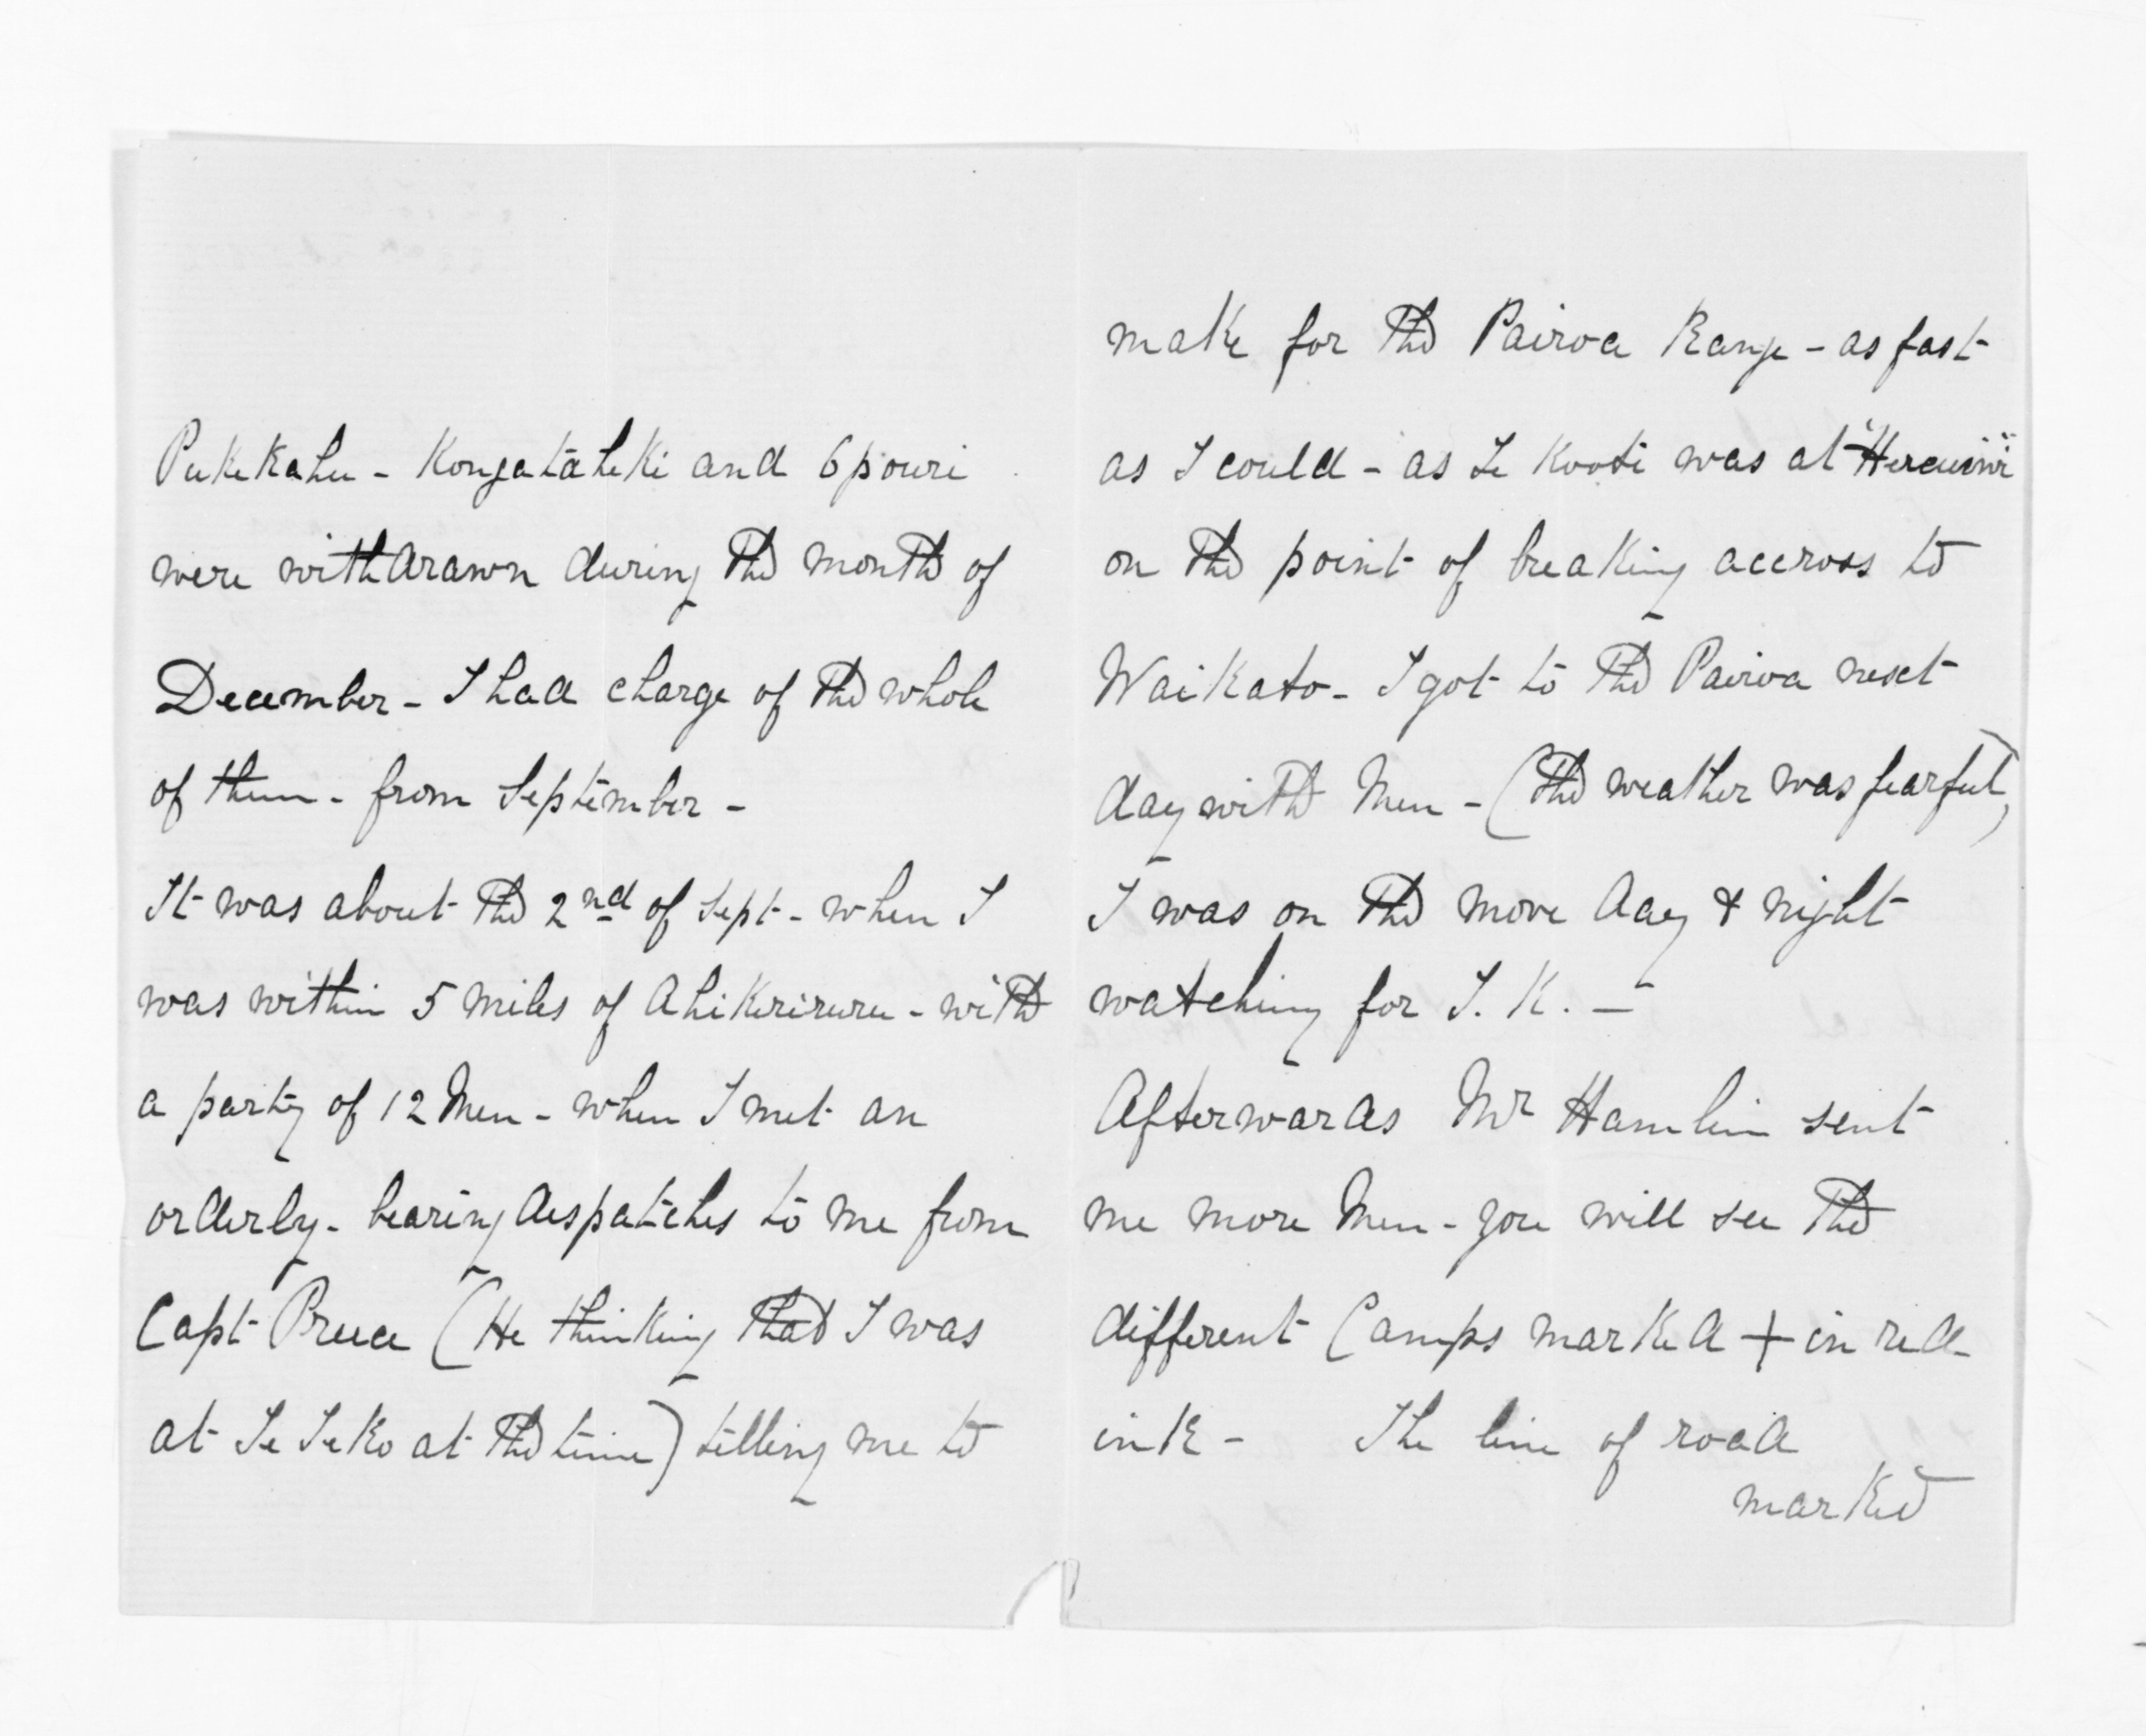 Pukekahu - Kongatāheki and Opouri
were withdrawn during the month of
December - I had charge of the whole
of them - from September -
It was about the 2nd of Sept - when I
was within 5 miles of Ahikeriruru - with
a party of 12 Men - when I met an
orderly - bearing despatches to me from
Capt Preece (He thinking that I was
at Te Teko at the time) telling me to
make for the Pairoa Range - as fast
as I could - as Te Kooti was at
on the point of breaking accross to
Waikato - I got to the Pairoa next
day with Men - (the weather was fearful)
I was on the move day & night
watching for T. K. -
Afterwards Mr Hamlin sent
me more Men - you will see the
different Camps marked + in red
ink - The line of road
marked